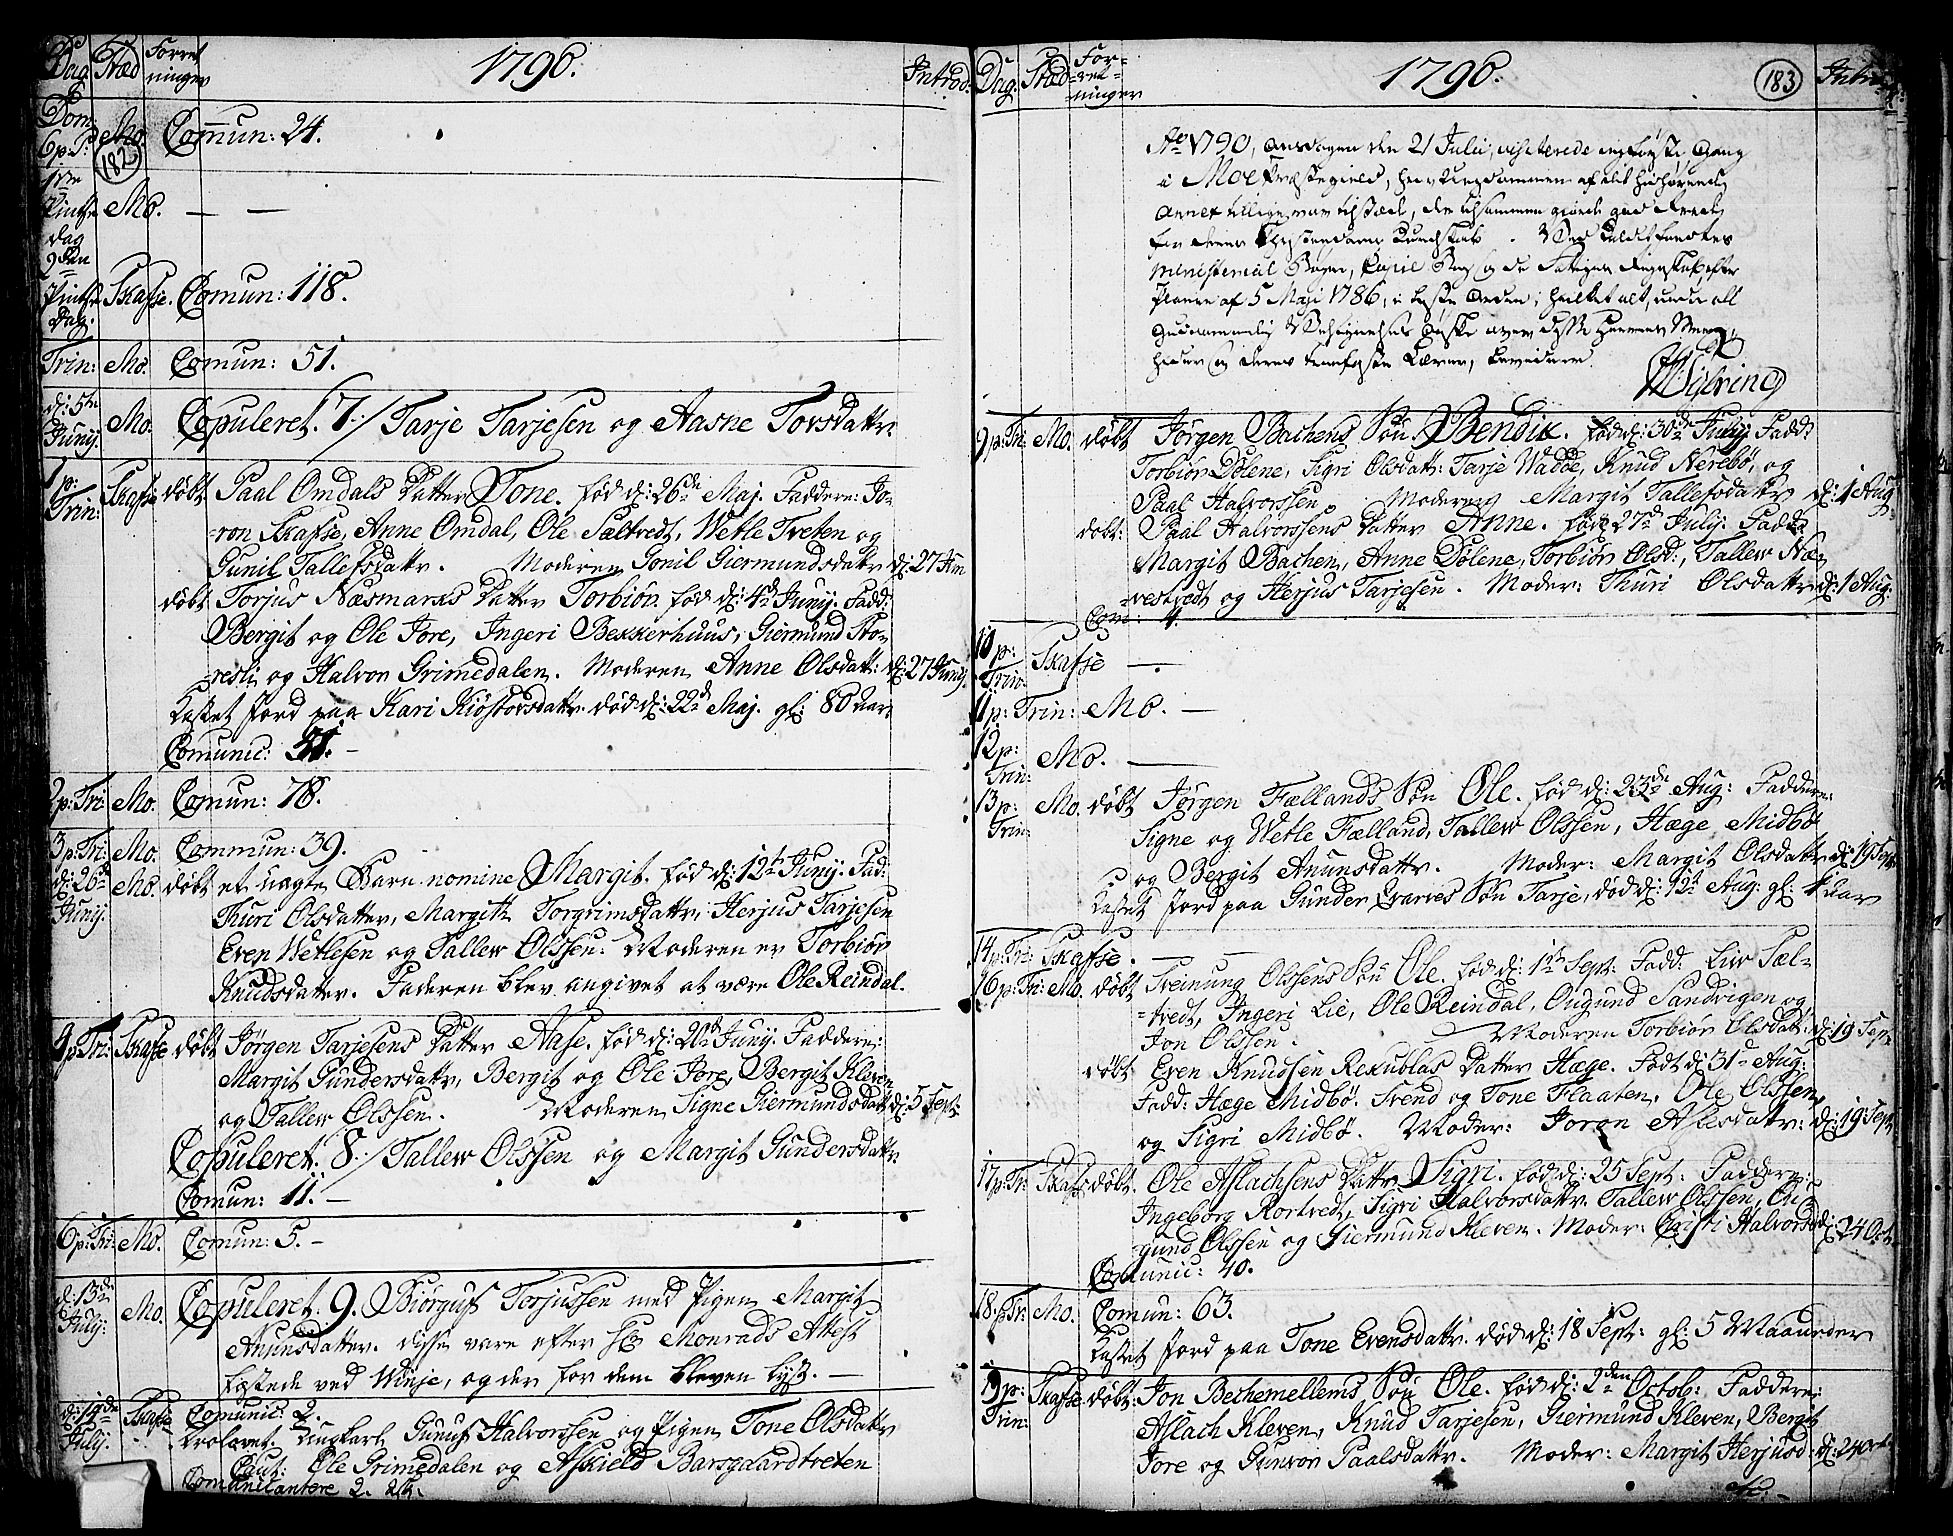 Dag Stæd Forret
ninger 1796. Introd:
Dom.
6 p: P: Mo. Com̄un: 24.
182
1ste
Pintse Mo. — —
dag
2den
Pintse Skafse. Comun: 118.
Dag.
Trin: Mo. Comun: 51.
d: 5te
Juny. Mo. Copuleret. 7./ Tarje Tarjesen og Aasne Torsdattr.
1 p:
Trin: Skafse døbt Paal Omdals Datter Tone. fød d: 26de Maj. Faddere: Jo-
-ron Skafse, Anne Omdal, Ole Saltvedt, Wetle Tveten og
Gunil Tallefsdattr. Moderen Gonil Giermundsdattr d: 27 Jun
døbt Torjus Næsmarks Datter Torbiør fød d: 4de Juny. Fadd:
Bergit og Ole Jore, Ingeri Bekkerhuus, Giermund Sto-
-resli og Halvor Grimedalen. Moderen Anne Olsdatt: d: 27 Juny.
Kastet Jord paa Kari Kiøstovsdattr død d: 22de Maj. gl: 80 aar
Comunic: 31. —
2 p: Tri: Mo. Comun: 78.
3 p: Tri: Mo. Commun: 39.
d: 26de
Juny. Mo. døbt et uægte Barn nomine Margit. fød d: 12te Juny. Fad:
Thuri Olsdatter, Margith Torgrimsdattr, Herjus Tarjesen
Even Wetlesen og Tallew Olssen. Moderen er Torbiør
Knudsdatter. Faderen blev angivet at være Ole Reindal.
4 p Tri: Skafse døbt Jørgen Tarjesens Datter Aase. fød d: 20de Juny. Faddere:
Margit Gundersdattr, Bergit og Ole Jore, Bergit Kleven
og Tallew Olssen. Moderen Signe Giermundsdattr d: 5 Sept:
Copuleret. 8./ Tallew Olssen og Margit Gundersdattr.
Comun: 11. —
6 p: Tri: Mo. Comun: 5. —
d: 13de
July: Mo. Copuleret. 9. Biørguf Torjussen med Pigen Margit
Anunsdatter. disse vare efter Hr Monrads Attest
fæstede ved Winje, og der for dem bleven lyst. —
d: 14de
July. Skafse Comunic: 2.
Trolovet. Ungkarl Gunuf Halvorssen og Pigen Tone Olsdattr
Caut: Ole Grimedalen og Askield Barsgaardtveten
Comunicantere 2.
Dag: Stæd For-
-ret-
-ninger 1796. 183 Intro
Ao 1790, Onsdagen den 21 Julii, visiterede
i Moe Præstegield, hvor Ungdommen af alt
Annex tillige var tilstæde, der tilsammen giorde god Rede
for deres Christendoms Kundskab. Ved Kaldet førtes
Ministerial Bogen, Copie Bog og de
Planen af 5 Maji 1786, i beste Orden; hvilket alt, under
Wilring
9 p: Tri: Mo. døbt Jørgen Bachens Søn Bendix. fød d: 30de July Fadd:
Torbiør Dølene, Sigri Olsdatr: Tarje Wadde, Knud Nerebø, og
Paal Halvorssen. Moderen Margit Tallefsdattr d: 1 Aug
døbt: Paal Halvorssens Datter Anne. fød 27de July: Fadd:
Margit Bachen, Anne Dølene, Torbiør Olsd:, Tallew Næ-
-restvedt og Herjus Tarjesen. Moder: Thuri Olsdattr d: 1 Aug:
Com: 4.
10 p:
Trin: Skafse —
11 p: Trin: Mo. —
12 p:
Trin: Mo. —
13 p:
Trin: Mo. døbt Jørgen Fællands Søn Ole. fød d: 23de Aug: Faddere:
Signe og Wetle Fælland, Tallew Olssen, Hæge Midbø
og Bergit Anunsdattr. Moder: Margit Olsdattr d: 19 Sept
Kastet Jord paa Gunder Evarves Søn Tarje, død d: 12te Aug: gl: 4 aar
14 p: Tri: Skafse. —
16 p: Tri: Mo. døbt Steinung Olssens Søn Ole. fød d: 1te Sept: Fadd: Liw Sæl-
-tvedt, Ingeri Lie, Ole Reindal, Ougund Sandvigen og
Jon Olssen. Moderen Torbiør Olsdat: d: 19 Sept
døbt Even Knudsen Rekublas Datter Hæge. Født d: 31te Aug:
Fadd: Hæge Midbø, Svend og Tone Flaaten, Ole Olssen,
og Sigri Midbø. Moder: Joron Aslesdattr: d: 19 Sept
17 p: Tr: Skafs: døbt. Ole Aslachsens Dattr. Sigri. fød d: 25 Sept: Faddere:
Ingeborg Rortvedt, Sigri Halvorsdattr. Tallew Olssen, Ou-
gund Olssen og Giermund Kleven. Moder: Cristi Halvorsd d: 24 Oct
Comunic: 40.
18 p Tr: Mo. Comun: 63.
Kastet Jord paa Tone Evensdattr. død d: 18 Sept: gl: 5 Maaneder
19 p:
Trin: Skafse døbt Jon Bethemellems Søn Ole. fød d: 2den Octob: Faddere:
Aslach Kleven, Knud Tarjesen, Giermund Kleven, Bergit
Jore og Gunvor Paalsdattr. Moder: Margit Herjusd d: 24 Oct: